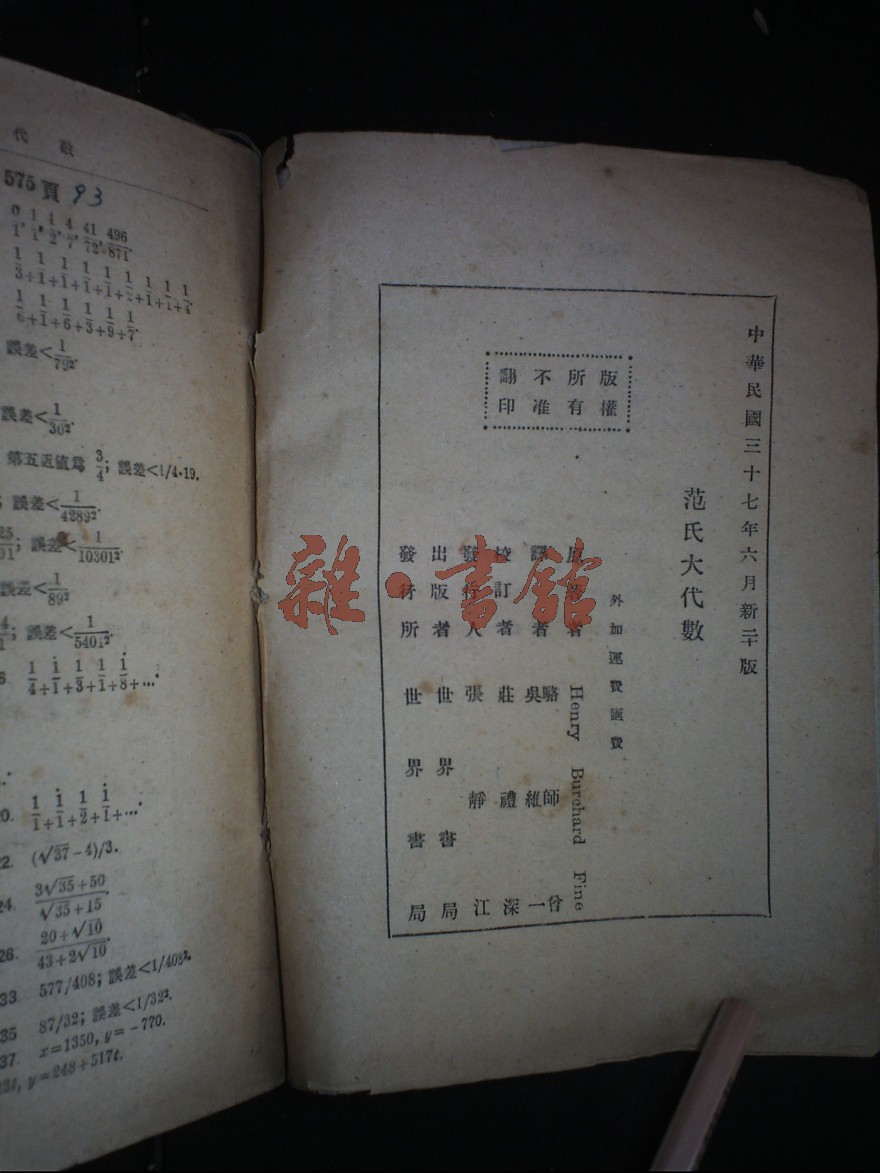 代 數
575頁 93
0/1, 1/1, 1/2, 4/7, 41/72, 496/871.
誤差<1/79².
誤差<1/30².
第五近值爲 3/4; 誤差<1/4·19.
誤差<1/4289².
誤差<1/10301².
誤差<1/89².
誤差<1/5401².
1/4+1/1+1/3+1/1+1/8+...
20. 1/1+1/1+1/2+1/1+...
22. (√37-4)/3.
24. (3√35+50)/(√35+15).
26. (20+√10)/(43+2√10).
33 577/408; 誤差<1/408².
35 87/32; 誤差<1/32².
37. x=1350, y=-770.
y=248+517t.
中華民國三十七年六月新二十版
范氏大代數
版權所有不准翻印
外加運費匯費
原著者 Henry Burchard Fine
譯者 駱師曾 吳維一
校訂者 莊禮深
發行人 張靜江
出版者 世界書局
發行所 世界書局
雜·書館